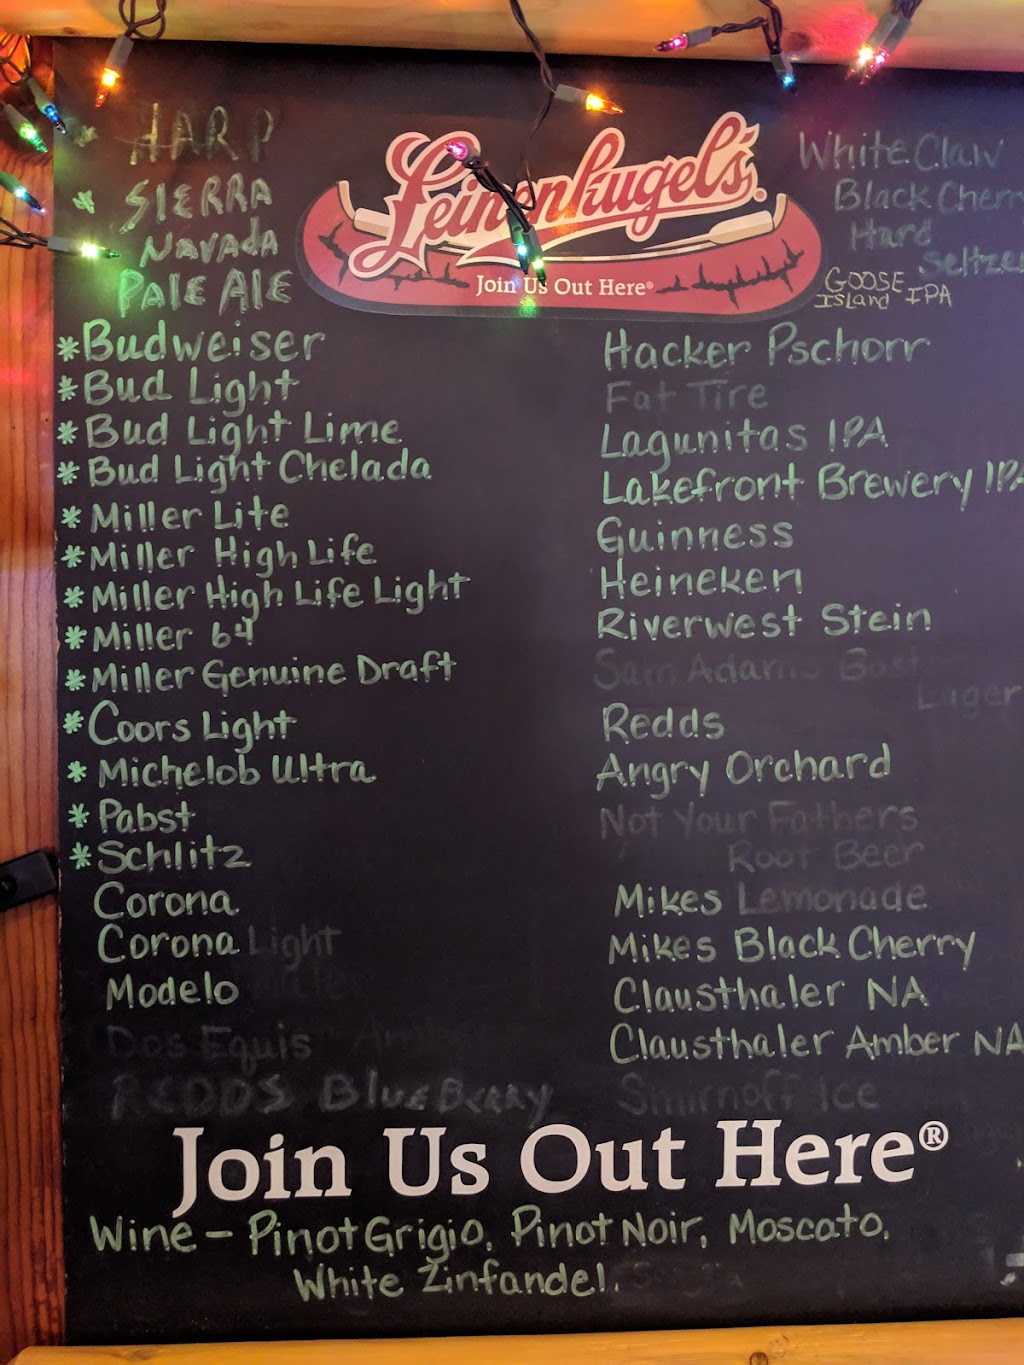 HARP
SIERRA
NAVADA
PALE ALE
Leinenkugel's®
Join Us Out Here®
White Claw
Black Cherry
Hard
Seltzer
GOOSE
ISland IPA
*Budweiser
*Bud Light
*Bud Light Lime
*Bud Light Chelada
*Miller Lite
*Miller High Life
*Miller High Life Light
*Miller 64
*Miller Genuine Draft
*Coors Light
*Michelob Ultra
*Pabst
*Schlitz
Corona
Corona Light
Modelo
Dos Equis Amber
REDDS BlueBERRY
Hacker Pschorr
Fat Tire
Lagunitas IPA
Lakefront Brewery IPA
Guinness
Heineken
Riverwest Stein
Sam Adams
Lager
Redds
Angry Orchard
Not Your Fathers
Root Beer
Mikes Lemonade
Mikes Black Cherry
Clausthaler NA
Clausthaler Amber NA
Smirnoff Ice
Join Us Out Here®
Wine - Pinot Grigio, Pinot Noir, Moscato,
White Zinfandel.